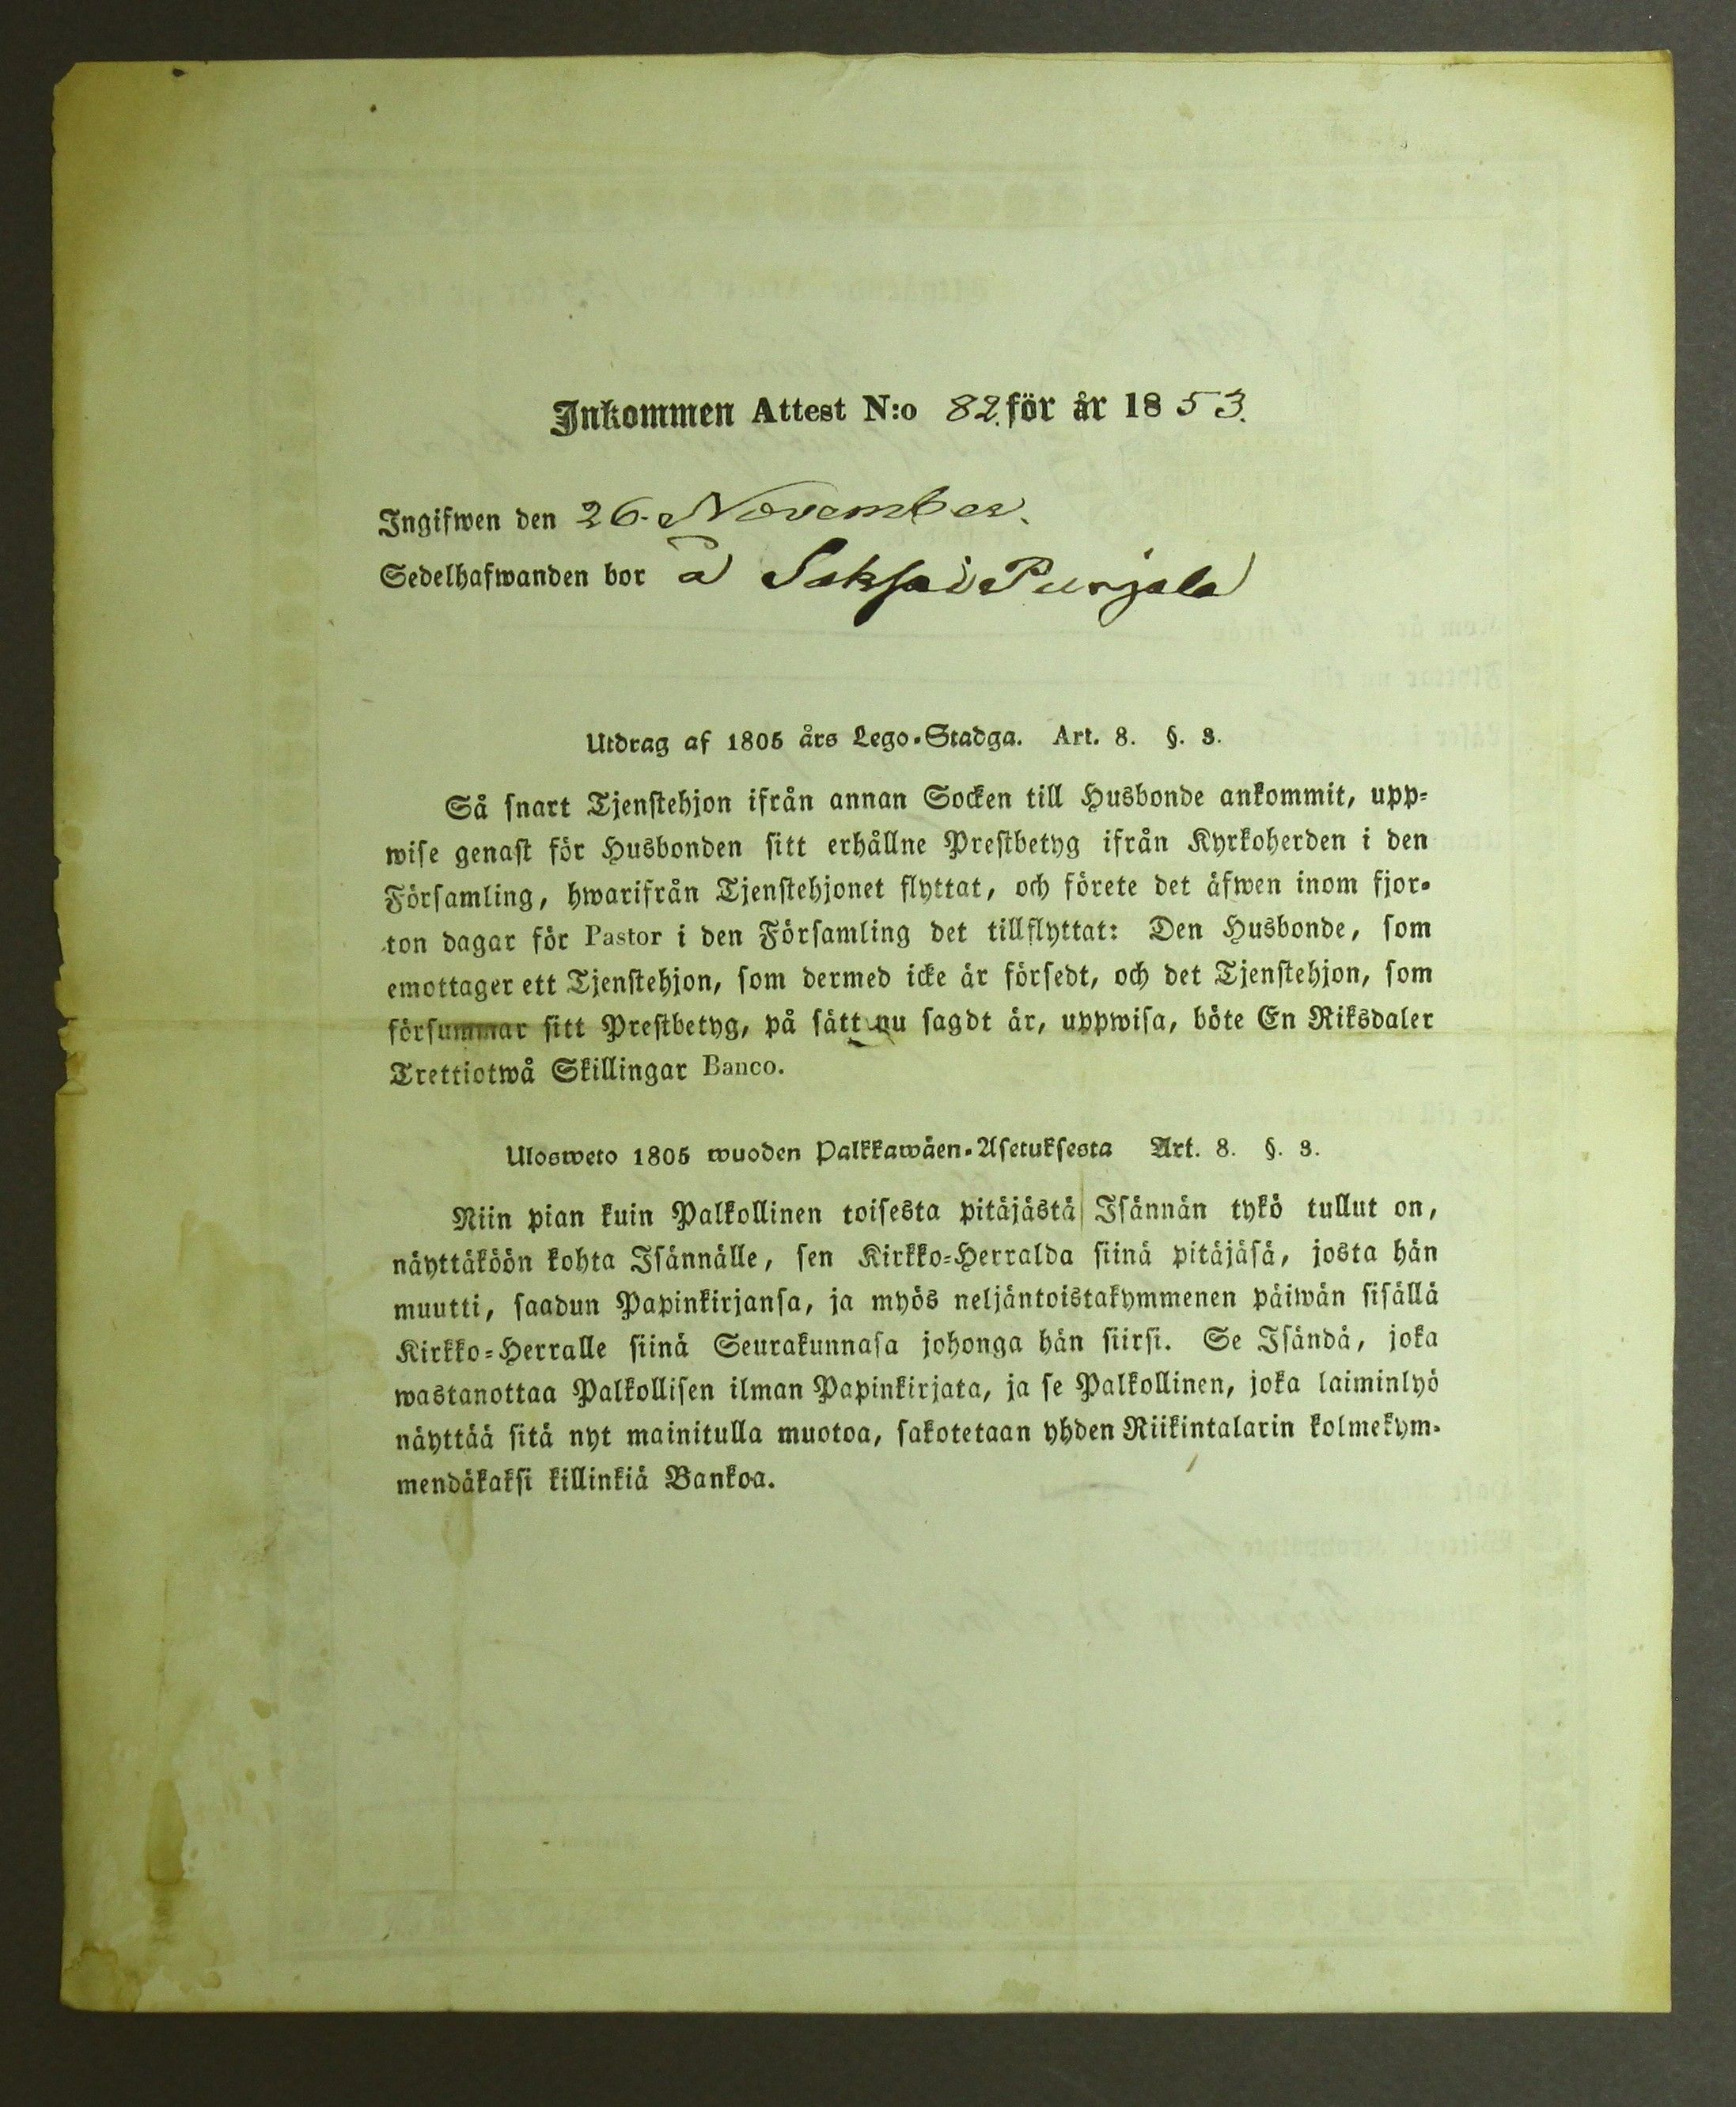 Inkommen Attest N:o 82. för år 1853.
Ingifwen den 26. November.
Sedelhafwanden bor å Saksa i Purjala
Utdrag af 1805 års Lego-Stadga. Art. 8. §. 3.
Så snart Tjenstehjon ifrån annan Socken till Husbonde ankommit, upp-
wise genast för Husbonden sitt erhållne Prestbetyg ifrån Kyrkoherden i den
Församling, hwarifrån Tjenstehjonet flyttat, och förete det äfwen inom fjor-
ton dagar för Pastor i den Församling det tillflyttat: Den Husbonde, som
emottager ett Tjenstehjon, som dermed icke är försedt, och det Tjenstehjon, som
försummar sitt Prestbetyg, på sätt nu sagdt är, uppwisa, böte En Riksdaler
Trettiotwå Skillingar Banco.
Ulosweto 1805 wuoden Palkkawäen-Asetuksesta Art. 8. §. 3.
Niin pian kuin Palkollinen toisesta pitäjästä Isännän tykö tullut on,
näyttäköön kohta Isännälle, sen Kirkko-Herralda siinä pitäjäsä, josta hän
muutti, saadun Papinkirjansa, ja myös neljäntoistakymmenen päiwän sisällä
Kirkko-Herralle siinä Seurakunnasa johonga hän siirsi. Se Isändä, joka
wastanottaa Palkollisen ilman Papinkirjata, ja se Palkollinen, joka laiminlyö
näyttää sitä nyt mainitulla muotoa, sakotetaan yhden Riikintalarin kolmekym-
mendäkaksi killinkiä Bankoa.